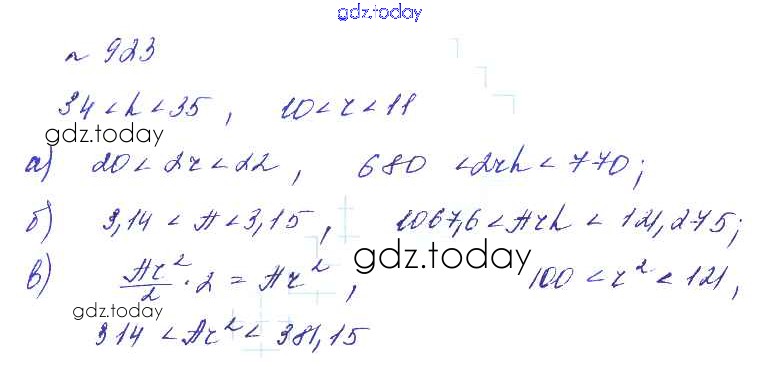 gdz.today
№ 923
34 < h < 35, 10 < r < 11
gdz.today
а) 20 < 2r < 22, 680 < 2rh < 770;
б) 3,14 < π < 3,15, 1067,6 < πrh < 121,275;
в) πr²/2 · 2 = πr², 100 < r² < 121,
gdz.today
gdz.today
314 < πr² < 381,15